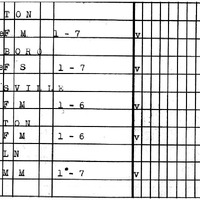 TON
eF M 1-7 v
BORO
eF S 1-7 v
SVILLE
F M 1-6 v
TON
F M 1-6 v
LN
M M 1-7 v